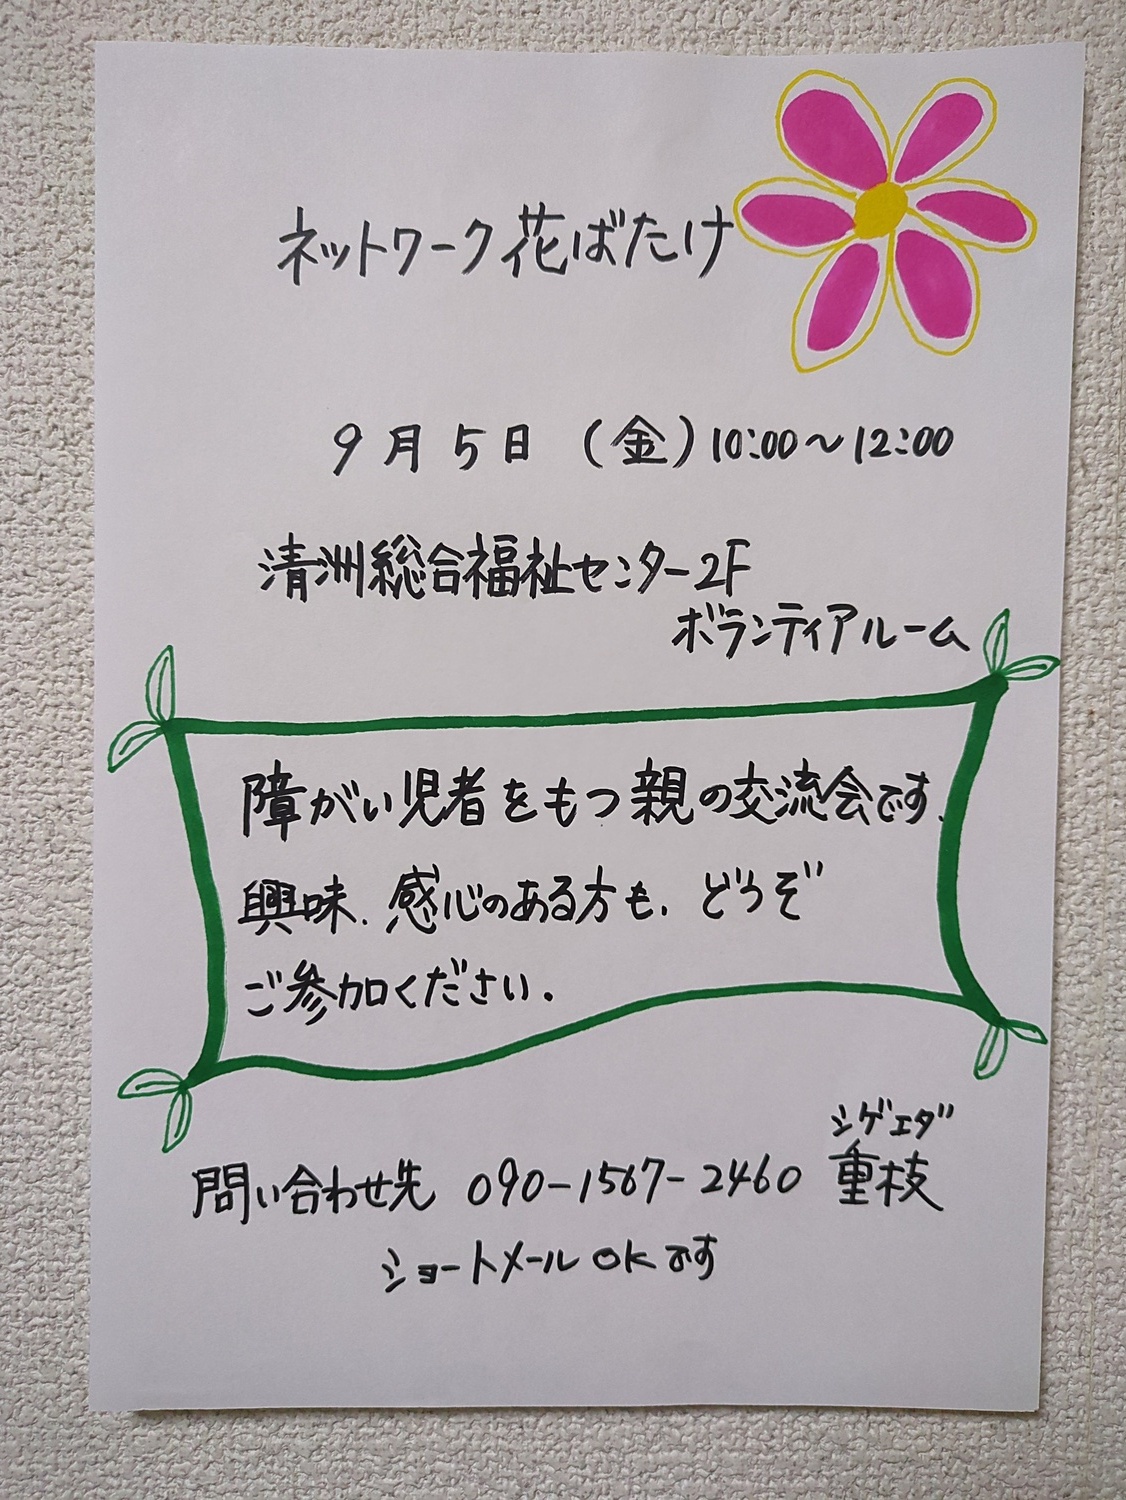 ネットワーク花ばたけ
9月5日（金）10:00～12:00
清洲総合福祉センター2F
ボランティアルーム
障がい児者をもつ親の交流会です.
興味、感心のある方も、どうぞ
ご参加ください.
シゲエダ
問い合わせ先 090-1567-2460 重枝
ショートメールOKです